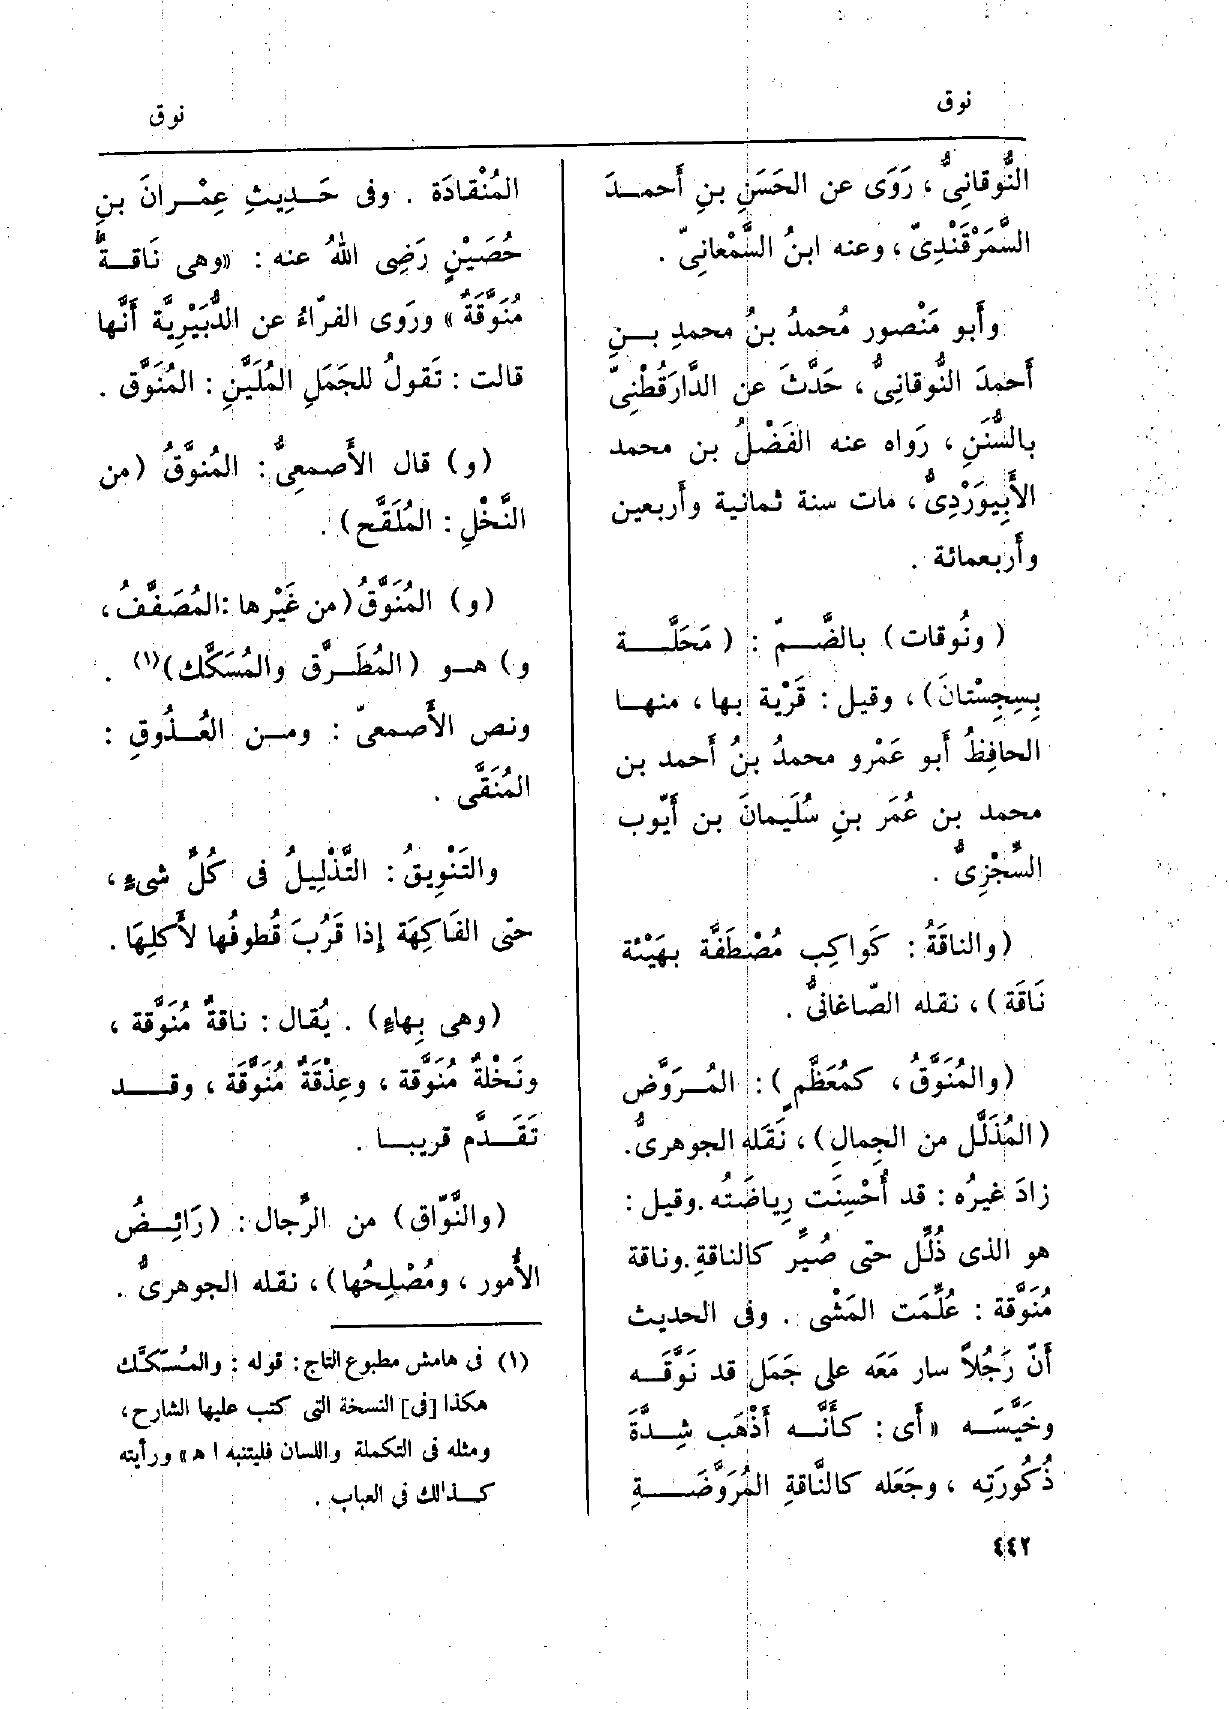 نوق
نوق
النُّوقانِىُّ ، رَوَى عن الحَسَنِ بنِ أَحمـدَ
السَّمَرْقَنْدِىّ ، وعنه ابنُ السَّمْعانِىّ .
وأَبو مَنْصور مُحمدُ بنُ محمدِ بـنِ
أَحمدَ النُّوقانِىُّ ، حَدَّثَ عن الدَّارَقُطْنِىّ
بالسُّنَنِ ، رَواه عنه الفَضْلُ بن محمد
الأَبِيوَرْدِىُّ ، مات سنة ثمانية وأَربعين
وأَربعمائة .
( ونُوقات) بالضَّـمّ : ( مَحَلَّـــة
بِسِجِسْتانَ) ، وقيل : قَرْية بها ، منهـا
الحافِظُ أَبو عَمْرو محمدُ بنُ أَحمد بن
محمد بن عُمَر بنِ سُلَيمانَ بن أَيّوب
السِّجْزِىُّ .
( والناقَةُ : كَواكِب مُصْطَفَّة بهَيْئَة
نَاقَة ) ، نقله الصّاغانىُّ .
(والمُنَوَّقُ ، كمُعَظَّمٍ ) : المُـرَوَّض
(المُذَلَّل من الجِمالِ) ، نَقَله الجوهرىُّ.
زادَ غيرُه : قد أُحْسِنَت رِياضَتُه .وقيل :
هو الذى ذُلِّل حتى صُيِّر كالناقةِ .وناقة
مُنَوَّقة : عُلِّمَت المَشْى . وفى الحديث
أَنّ رَجُلاً سار مَعَه على جَمَل قد نَوَّقَـه
وخَيَّسَـه » أَى : كأَنَّـه أَذْهَب شِدَّةَ
ذُكُورَتِه ، وجَعَله كالنَّاقةِ المُرَوَّضَـــةِ
٤٤٢
المُنْقادَة . وفى حَـدِيثِ عِمْـرانَ بنِ
حُصَيْنٍ رَضِى اللهُ عنه : «وهى نَاقـةٌ
مُنَوَّقَةٌ » ورَوى الفرّاءُ عن الدُّبَيْرِيَّة أَنَّها
قالت : تَقولُ للجَمَلِ المُلَيَّنِ : المُنَوَّق .
(و) قال الأَصمعِىُّ : المُنوَّقُ (من
النَّخْلِ : المُلَقَّح) .
(و) المُنَوَّقُ (من غَيْرها :المُصَفَّفُ ،
و) هـو (المُطَـرَّق والمُسَكَّك)(١) .
ونص الأَصمعىّ : ومـن العُـذُوقِ :
المُنَقَّى .
والتَنْوِيقُ : التَّذْلِيلُ فى كُلِّ شىءٍ ،
حتى الفَاكِهَة إذا قَرُبَ قُطوفُها لأَكلِهَا .
(وهى بِهاءٍ) . يُقال : ناقةٌ مُنَوَّقة ،
ونَخْلةٌ مُنَوَّقة ، وعِذْقَةٌ مُنَوَّقَة ، وقـــد
تَقَـدَّم قريبـا .
(والنَّوّاق) من الرِّجال : (رَائِـضُ
الأُمور ، ومُصْلِحُها) ، نقله الجوهرىُّ .
(١) فى هامش مطبوع التاج : قوله : والمُسَكَّك
هكذا [فى] النسخة التى كتب عليها الشارح،
ومثله فى التكملة واللسان فليتنبه ا ه» ورأيته
كــذالك فى العباب .